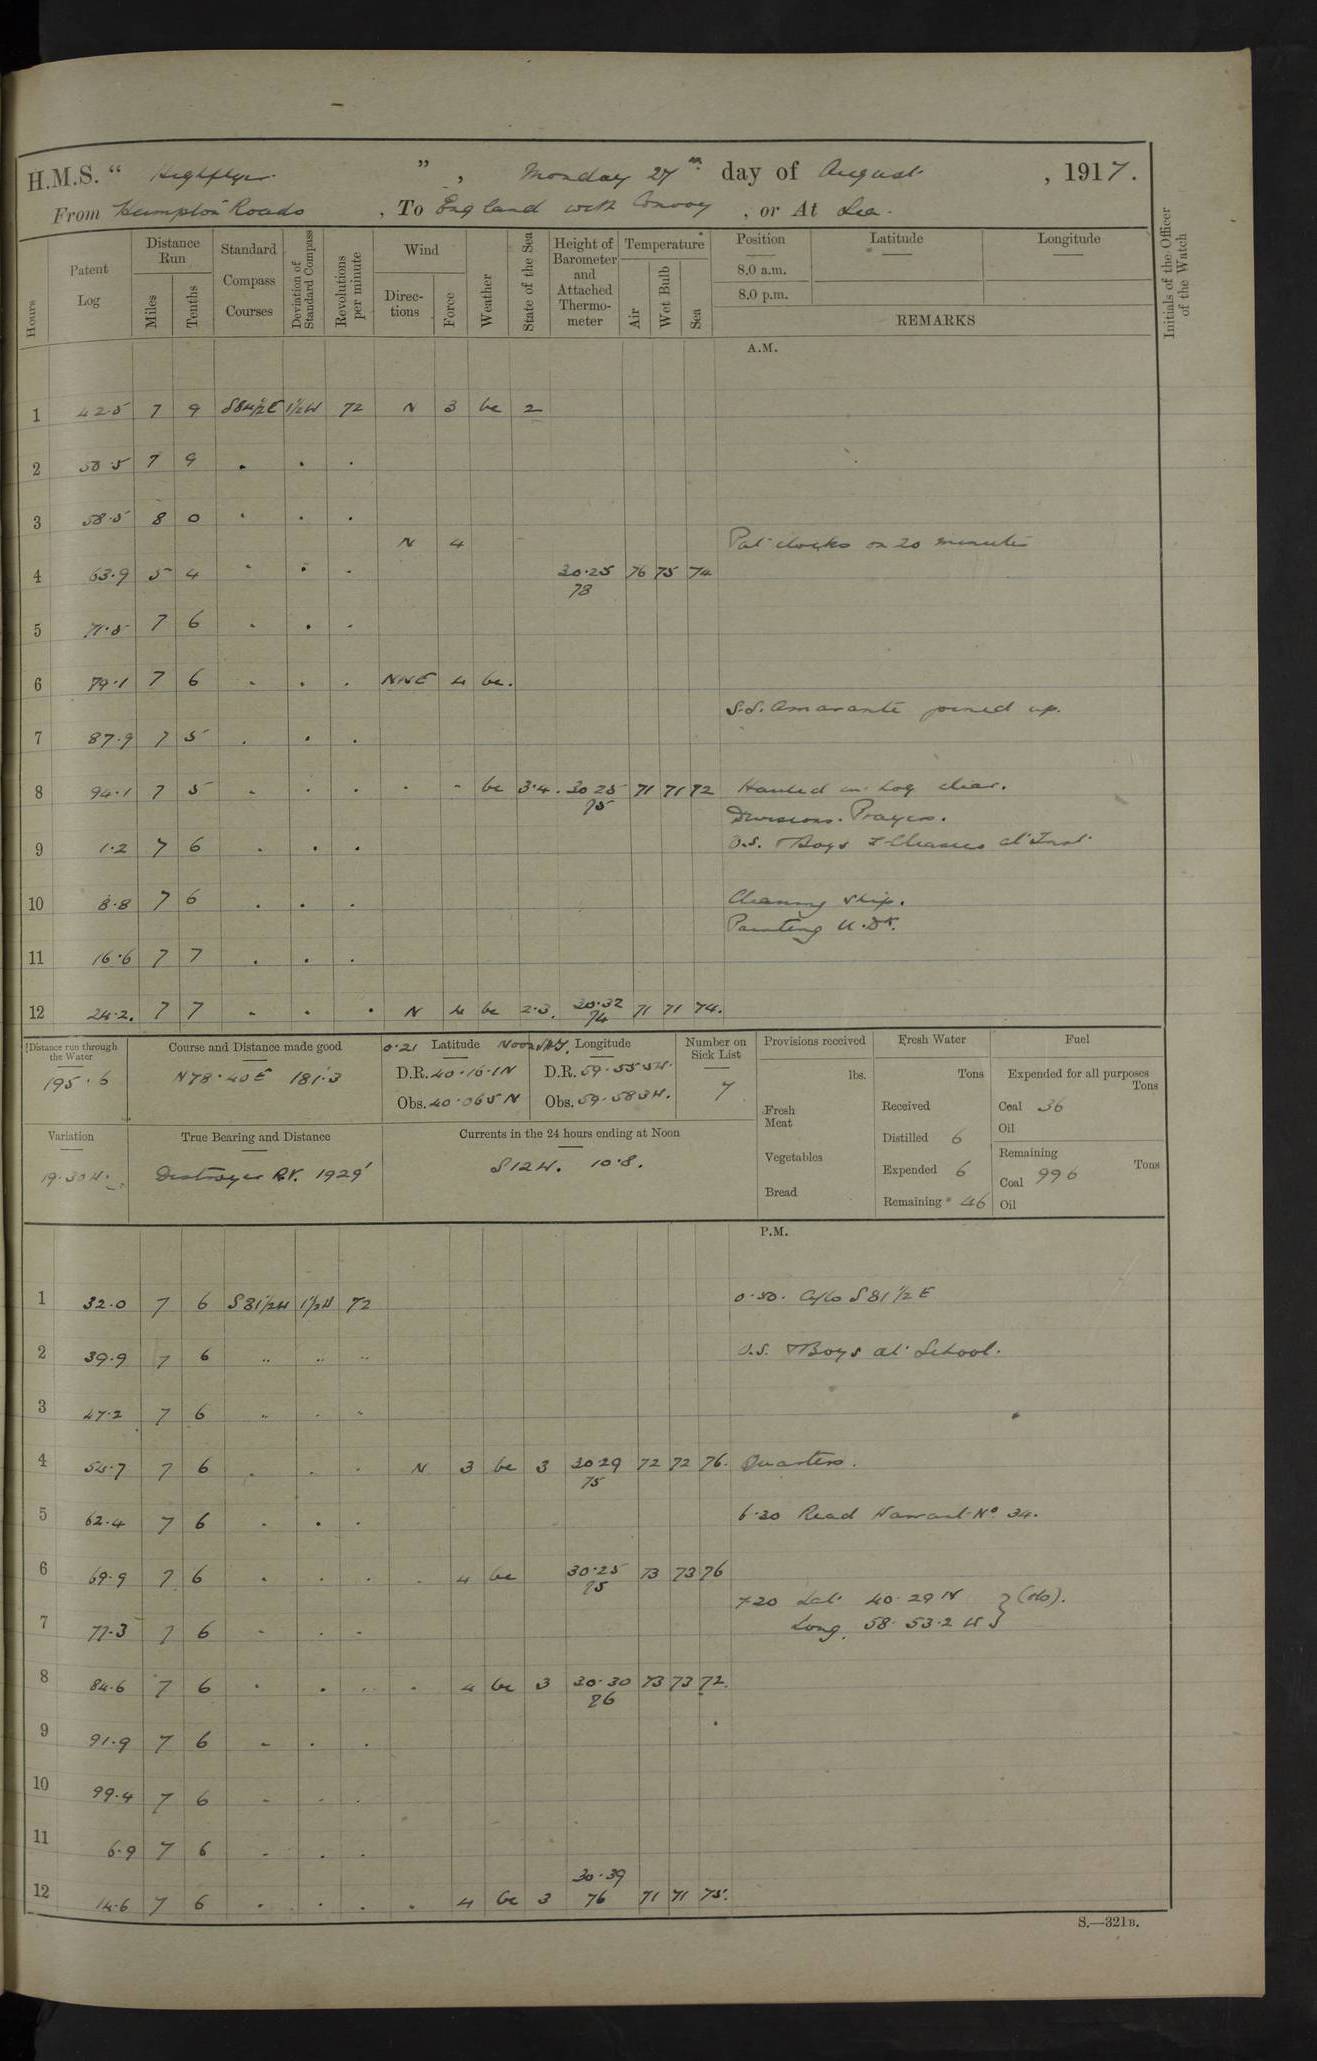 H.M.S. " Highflyer ", Monday 27th day of August, 1917.
From Hampton Roads, To England with Convoy, or At Sea.
Hours
Patent Log
Distance Run
Miles
Tenths
Standard Compass Courses
Deviation of Standard Compass
Revolutions per minute
Wind
Directions
Force
Weather
State of the Sea
Height of Barometer and Attached Thermometer
Temperature
Air
Wet Bulb
Sea
Position
8.0 a.m.
8.0 p.m.
Latitude
Longitude
REMARKS
Initials of the Officer of the Watch
A.M.
1 42.5 7 9 S84½E 1½W 72 N 3 bc 2
2 50.5 7 9 . . .
3 58.5 8 0 . . .
N 4 Put clocks on 20 minutes
4 63.9 5 4 . . . 30.25 76 75 74
78
5 71.5 7 6 . . .
6 79.1 7 6 . . . NNE 4 bc.
S.S. Amarante joined up.
7 87.9 7 5 . . .
8 94.1 7 5 . . . . . bc 3.4. 30 25 71 71 72 Hauled in log clear.
75 Divisions. Prayers.
9 1.2 7 6 . . . O.S. & Boys
10 8.8 7 6 . . . Cleaning ship.
Painting U.Dk.
11 16.6 7 7 . . .
12 24.2. 7 7 . . . N 4 bc 2.3. 30.32 71 71 74.
74
Distance run through the Water
195.6
Course and Distance made good
N78.40E 181.3
0.21 Latitude
D.R. 40.16.1N
Obs. 40.06 5 N
Longitude
D.R. 59.55 5W.
Obs. 59.58 3W.
Number on Sick List
7
Provisions received
lbs.
Fresh Meat
Vegetables
Bread
Fresh Water
Tons
Received
Distilled 6
Expended 6
Remaining 46
Fuel
Expended for all purposes
Tons
Coal 36
Oil
Remaining
Tons
Coal 996
Oil
Variation
19.30W.
True Bearing and Distance
Destroyer R.V. 1929'
Currents in the 24 hours ending at Noon
S12W. 10.8.
P.M.
1 32.0 7 6 S81½W 1½W 72 0.50. A/Co S81½E
2 39.9 7 6 " " " O.S. & Boys at School.
3 47.2 7 6 " . "
4 54.7 7 6 . . . N 3 bc 3 30 29 72 72 76. Quarters.
75
5 62.4 7 6 . . . 6.30 Read Warrant No 34.
6 69.9 7 6 . . . . 4 bc 30.25 73 73 76
75
7.20 Lat. 40.29 N } (obs).
7 77.3 7 6 . . . Long. 58.53.2 W
8 84.6 7 6 . . . . 4 bc 3 30.30 73 73 72.
76
9 91.9 7 6 . . .
10 99.4 7 6 . . .
11 6.9 7 6 . . .
30.39
12 14.6 7 6 . . . . 4 bc 3 76 71 71 75.
S.—321B.